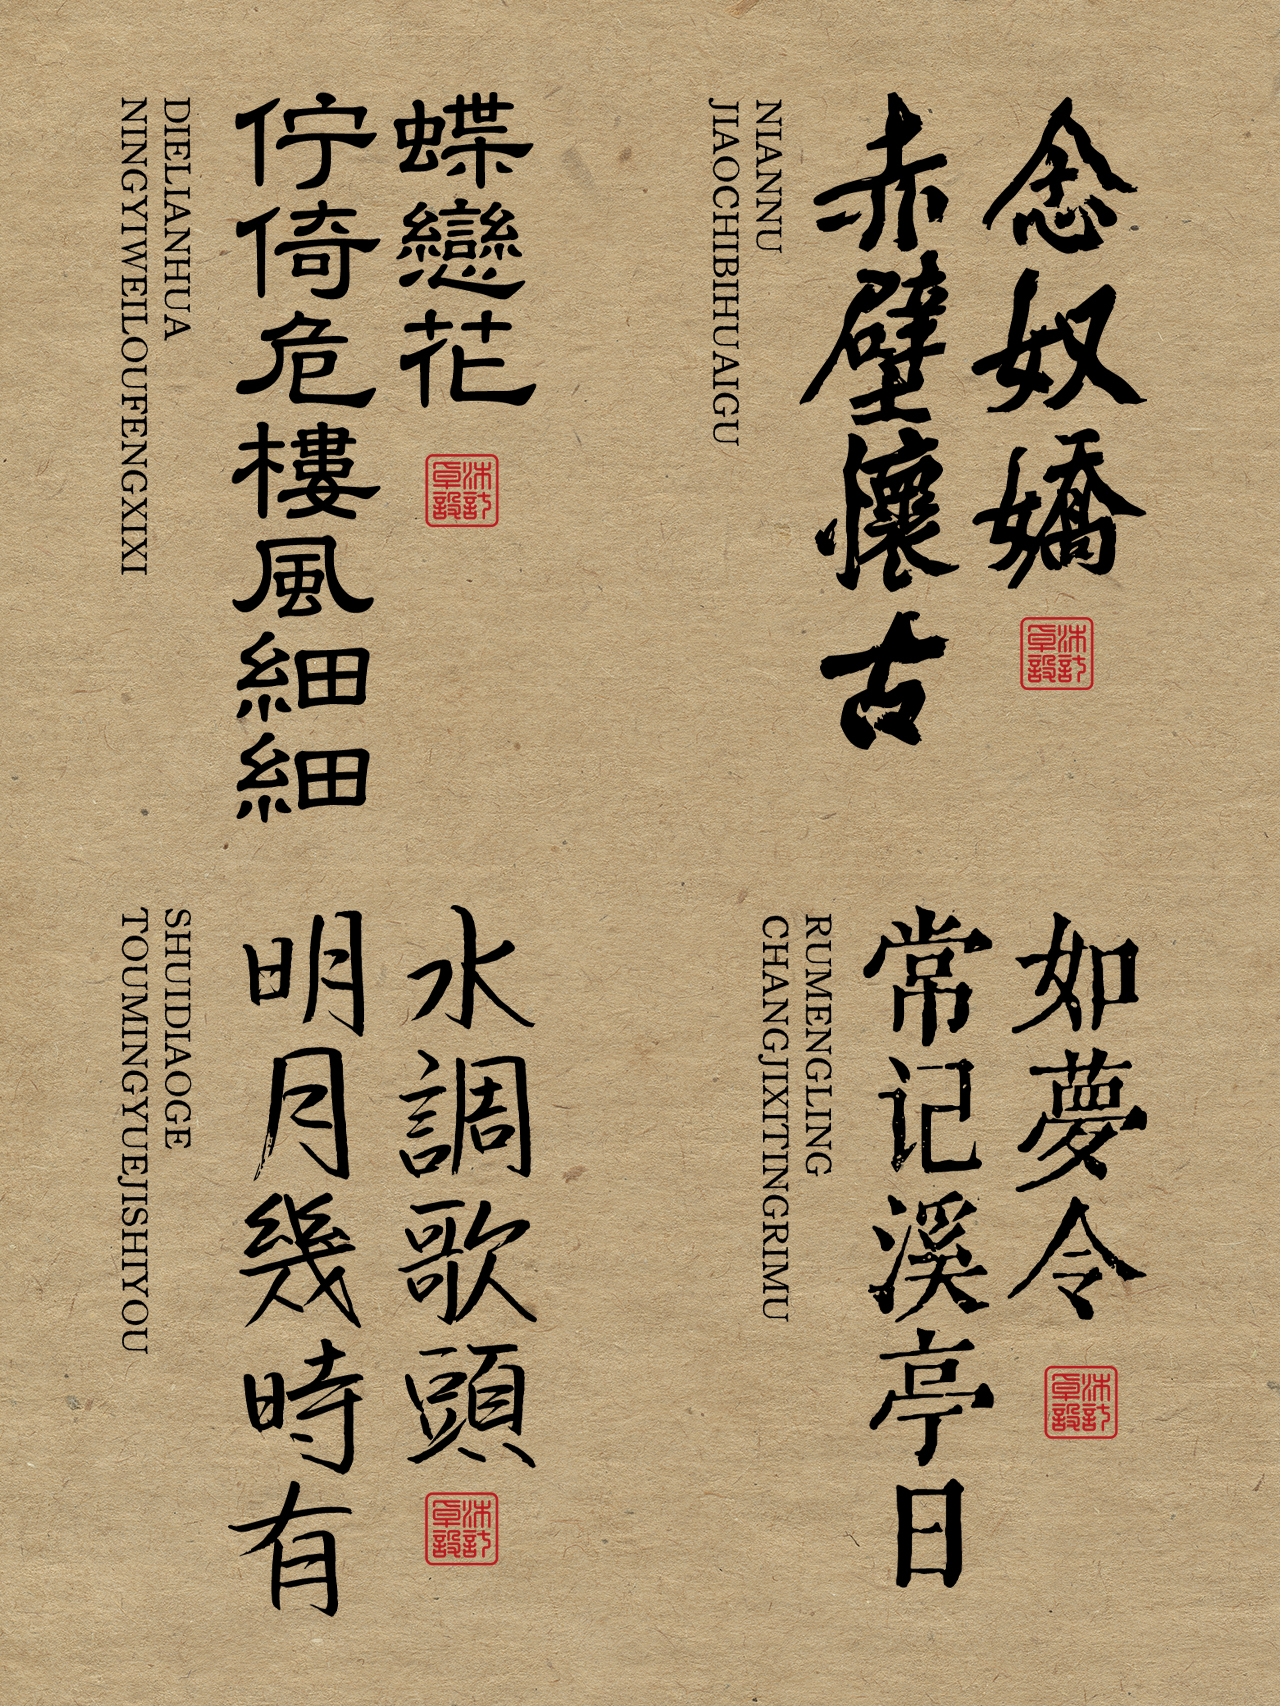 念奴嬌
赤壁懷古
NIANNU
JIAOCHIBIHUAIGU
蝶戀花
佇倚危樓風細細
DIELIANHUA
NINGYIWEILOUFENGXIXI
如夢令
常记溪亭日
RUMENGLING
CHANGJIXITINGRIMU
水調歌頭
明月幾時有
SHUIDIAOGE
TOUMINGYUEJISHIYOU